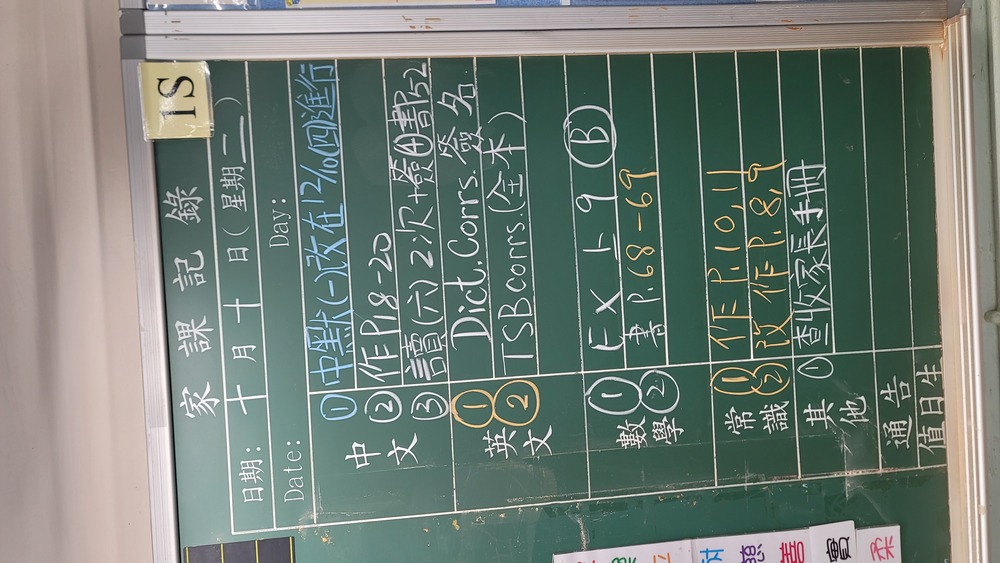 1S
家課記錄
日期: 十月十日(星期二)
Date: Day:
中文 ① 中默(一)改在12/10(四)進行
② 作P18-20
③ 讀(六)2次+簽④書52
英文 ① Dict. Corrs. 簽名
② TSB corrs. (全本)
數學 ① Ex 上9 Ⓑ
② 書 P.68-69
常識 ① 作 P.10,11
② 改作 P.8,9
其他 ① 查收家長手冊
通告
值日生